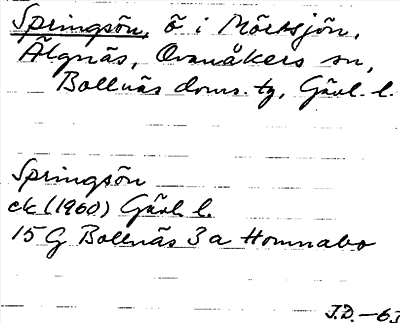 Springsön, ö i Mörtsjön,
Älgnäs, Ovanåkers sn,
Bollnäs doms. tg, Gävl. l.
Springsön
ek (1960) Gävl l.
15 G Bollnäs 3 a Homnabo
J.D. -63